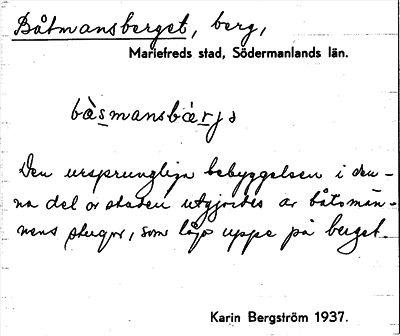 Båtmansberget, berg,
Mariefreds stad, Södermanlands län.
bàsmansbærjə
Den ursprungliga bebyggelsen i den-
na del av staden utgjordes av båtsmän-
nens stugor, som låg uppe på berget.
Karin Bergström 1937.